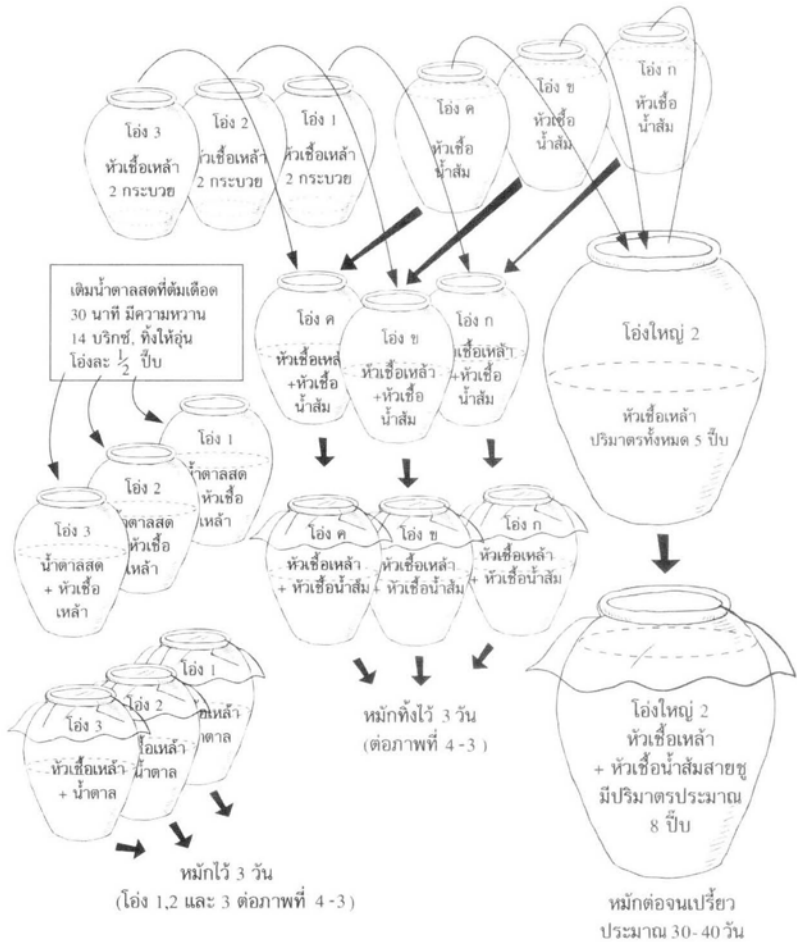 โอ่ง 3
หัวเชื้อเหล้า
2 กระบวย
โอ่ง 2
หัวเชื้อเหล้า
2 กระบวย
โอ่ง 1
หัวเชื้อเหล้า
2 กระบวย
โอ่ง ค
หัวเชื้อ
น้ำส้ม
โอ่ง ข
หัวเชื้อ
น้ำส้ม
โอ่ง ก
หัวเชื้อ
น้ำส้ม
เติมน้ำตาลสดที่ต้มเดือด
30 นาที มีความหวาน
14 บริกซ์, ทิ้งให้อุ่น
โอ่งละ 1/2 ปี๊บ
โอ่ง ค
หัวเชื้อเหล้า
+หัวเชื้อ
น้ำส้ม
โอ่ง ข
หัวเชื้อเหล้า
+หัวเชื้อ
น้ำส้ม
โอ่ง ก
หัวเชื้อเหล้า
+หัวเชื้อ
น้ำส้ม
โอ่งใหญ่ 2
หัวเชื้อเหล้า
ปริมาตรทั้งหมด 5 ปี๊บ
โอ่ง 1
น้ำตาลสด
หัวเชื้อ
เหล้า
โอ่ง 2
น้ำตาลสด
หัวเชื้อ
เหล้า
โอ่ง 3
น้ำตาลสด
+ หัวเชื้อ
เหล้า
โอ่ง ค
หัวเชื้อเหล้า
+ หัวเชื้อน้ำส้ม
โอ่ง ข
หัวเชื้อเหล้า
+ หัวเชื้อน้ำส้ม
โอ่ง ก
หัวเชื้อเหล้า
+ หัวเชื้อน้ำส้ม
หมักทิ้งไว้ 3 วัน
(ต่อภาพที่ 4-3 )
โอ่ง 1
เชื้อเหล้า
น้ำตาล
โอ่ง 2
เชื้อเหล้า
น้ำตาล
โอ่ง 3
หัวเชื้อเหล้า
+ น้ำตาล
หมักไว้ 3 วัน
(โอ่ง 1,2 และ 3 ต่อภาพที่ 4-3)
โอ่งใหญ่ 2
หัวเชื้อเหล้า
+ หัวเชื้อน้ำส้มสายชู
มีปริมาตรประมาณ
8 ปี๊บ
หมักต่อจนเปรี้ยว
ประมาณ 30-40 วัน